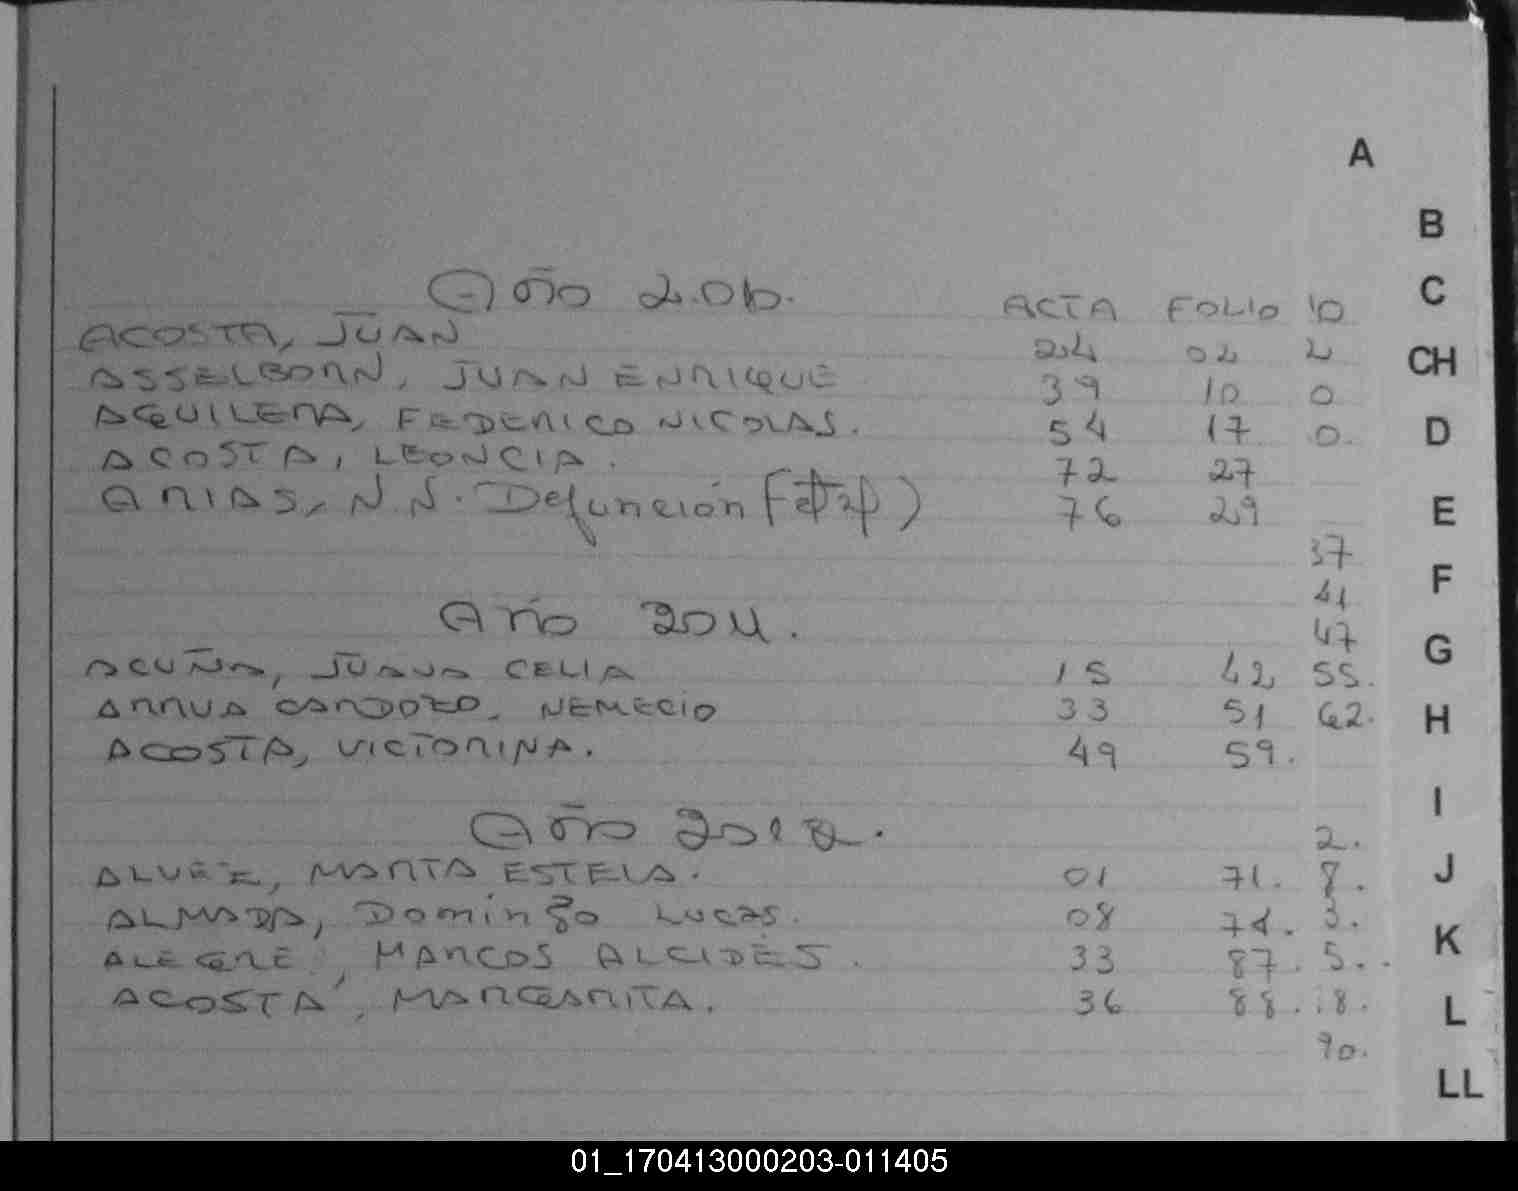 A
B
C
CH
D
E
F
G
H
I
J
K
L
LL
Año ACTA FOLIO 10
ACOSTA, JUAN 24 02 2
ASSELBORN, JUAN ENRIQUE 39 10 0
AQUILERA, FEDERICO NICOLAS. 54 17 0.
ACOSTA, LEONCIA. 72 27
ARIAS, N.N. Defunción 76 29
37
41
Año 2011. 47
ACUÑA, JUANA CELIA 15 42 55.
ARRUA CARDOZO, NEMECIO 33 51 62.
ACOSTA, VICTORINA. 49 59.
Año 2012. 2.
ALVEZ, MARTA ESTELA. 01 71. 8.
ALMADA, Domingo Lucas. 08 74. 3.
ALEGRE, MARCOS ALCIDES. 33 87. 5.
ACOSTA, MARGARITA. 36 88. 8.
90.
01_170413000203-011405